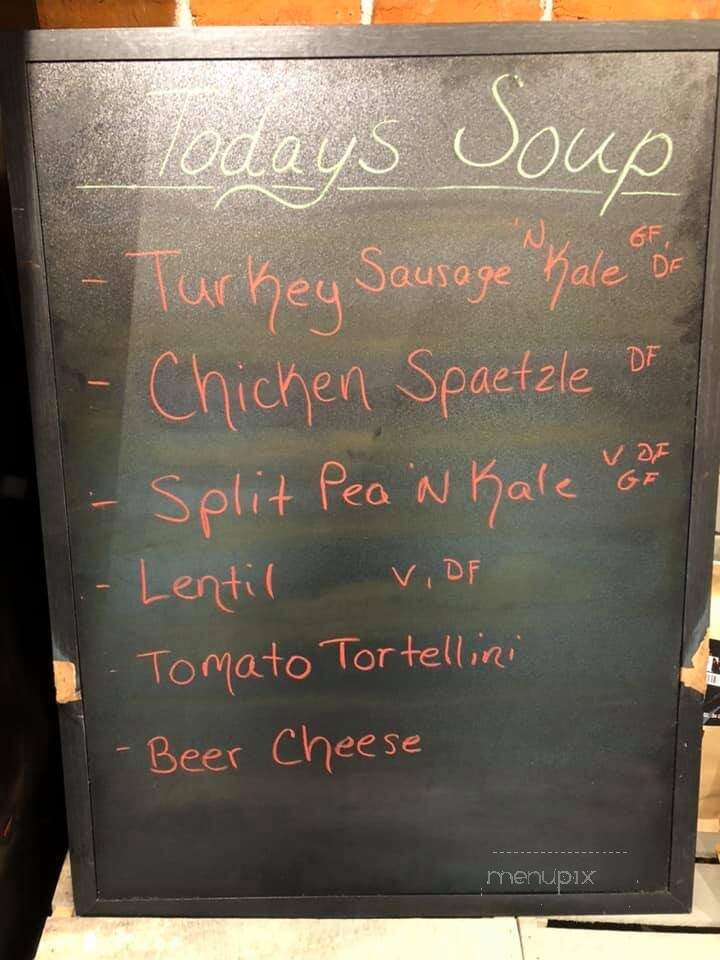 Todays Soup
- Turkey Sausage 'N Kale GF, DF
- Chicken Spaetzle DF
- Split Pea 'N Kale V DF GF
- Lentil V, DF
- Tomato Tortellini
- Beer Cheese
menupix